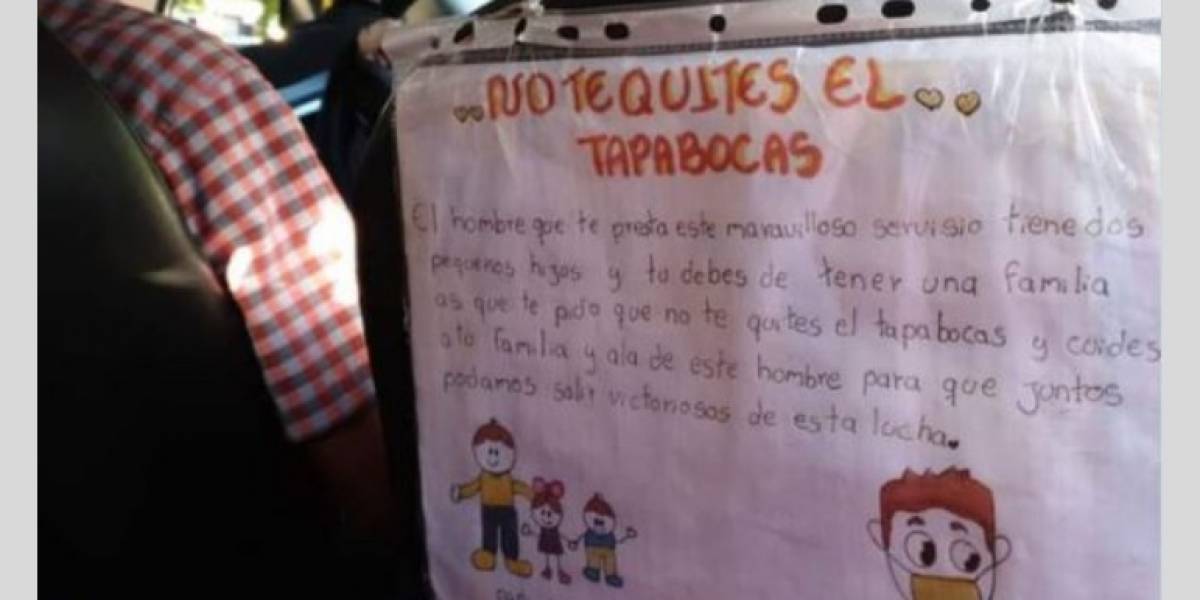 NO TE QUITES EL
TAPABOCAS
El hombre que te presta este maravilloso servisio tiene dos
pequenos hijos y tu debes de tener una familia
as que te pido que no te quites el tapabocas y cuides
a tu familia y ala de este hombre para que juntos
podamos salir victoriosos de esta lucha.